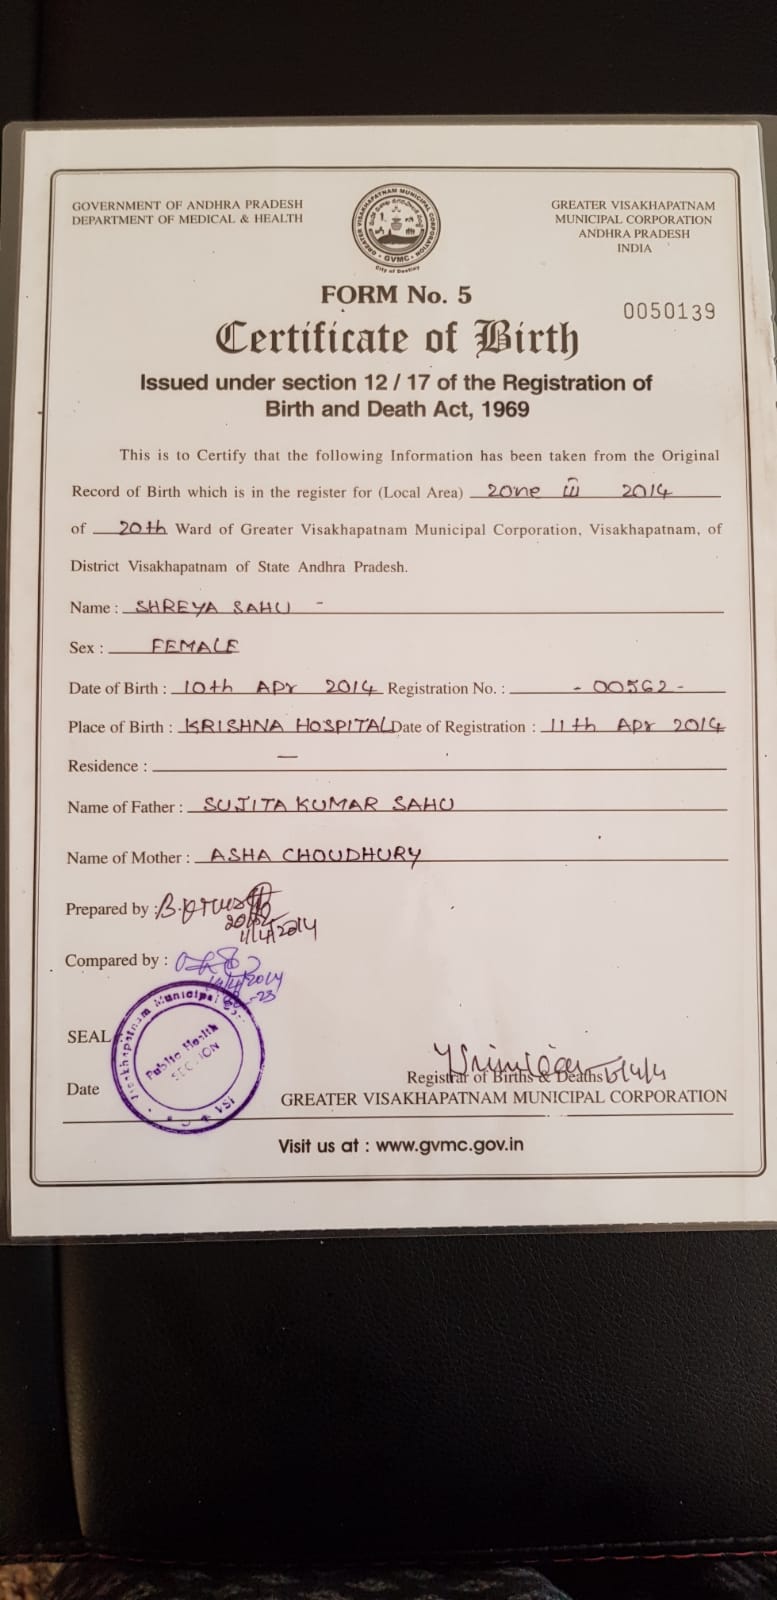 GOVERNMENT OF ANDHRA PRADESH
DEPARTMENT OF MEDICAL & HEALTH
GREATER VISAKHAPATNAM MUNICIPAL CORPORATION
GVMC
City of Destiny
GREATER VISAKHAPATNAM
MUNICIPAL CORPORATION
ANDHRA PRADESH
INDIA
FORM No. 5
0050139
Certificate of Birth
Issued under section 12 / 17 of the Registration of
Birth and Death Act, 1969
This is to Certify that the following Information has been taken from the Original
Record of Birth which is in the register for (Local Area) zone III 2014
of 20th Ward of Greater Visakhapatnam Municipal Corporation, Visakhapatnam, of
District Visakhapatnam of State Andhra Pradesh.
Name : SHREYA SAHU -
Sex : FEMALE
Date of Birth : 10th Apr 2014 Registration No. : - 00562 -
Place of Birth : KRISHNA HOSPITAL Date of Registration : 11th Apr 2014
Residence : —
Name of Father : SUJITA KUMAR SAHU
Name of Mother : ASHA CHOUDHURY
Prepared by :
11/4/2014
Compared by :
SEAL
Public Health
SECTION
Date
Registrar of Births & Deaths
GREATER VISAKHAPATNAM MUNICIPAL CORPORATION
Visit us at : www.gvmc.gov.in